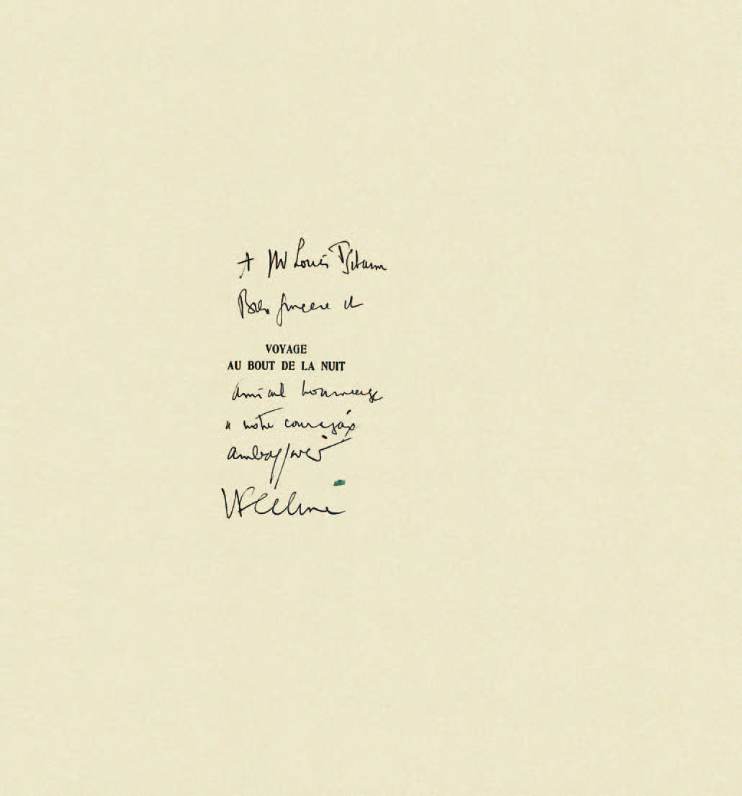 A Mr Louis
Bien sincère et
VOYAGE
AU BOUT DE LA NUIT
amical hommage
a notre courageux
ambassadeur
LF Céline